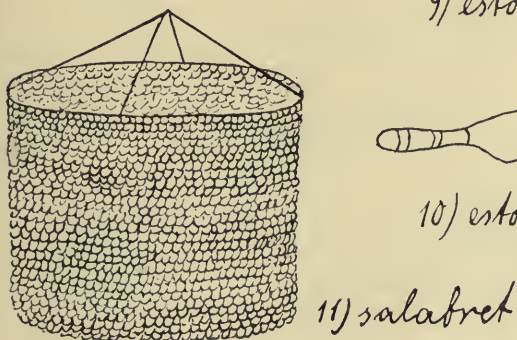 9) esto
10) esto
11) salabret